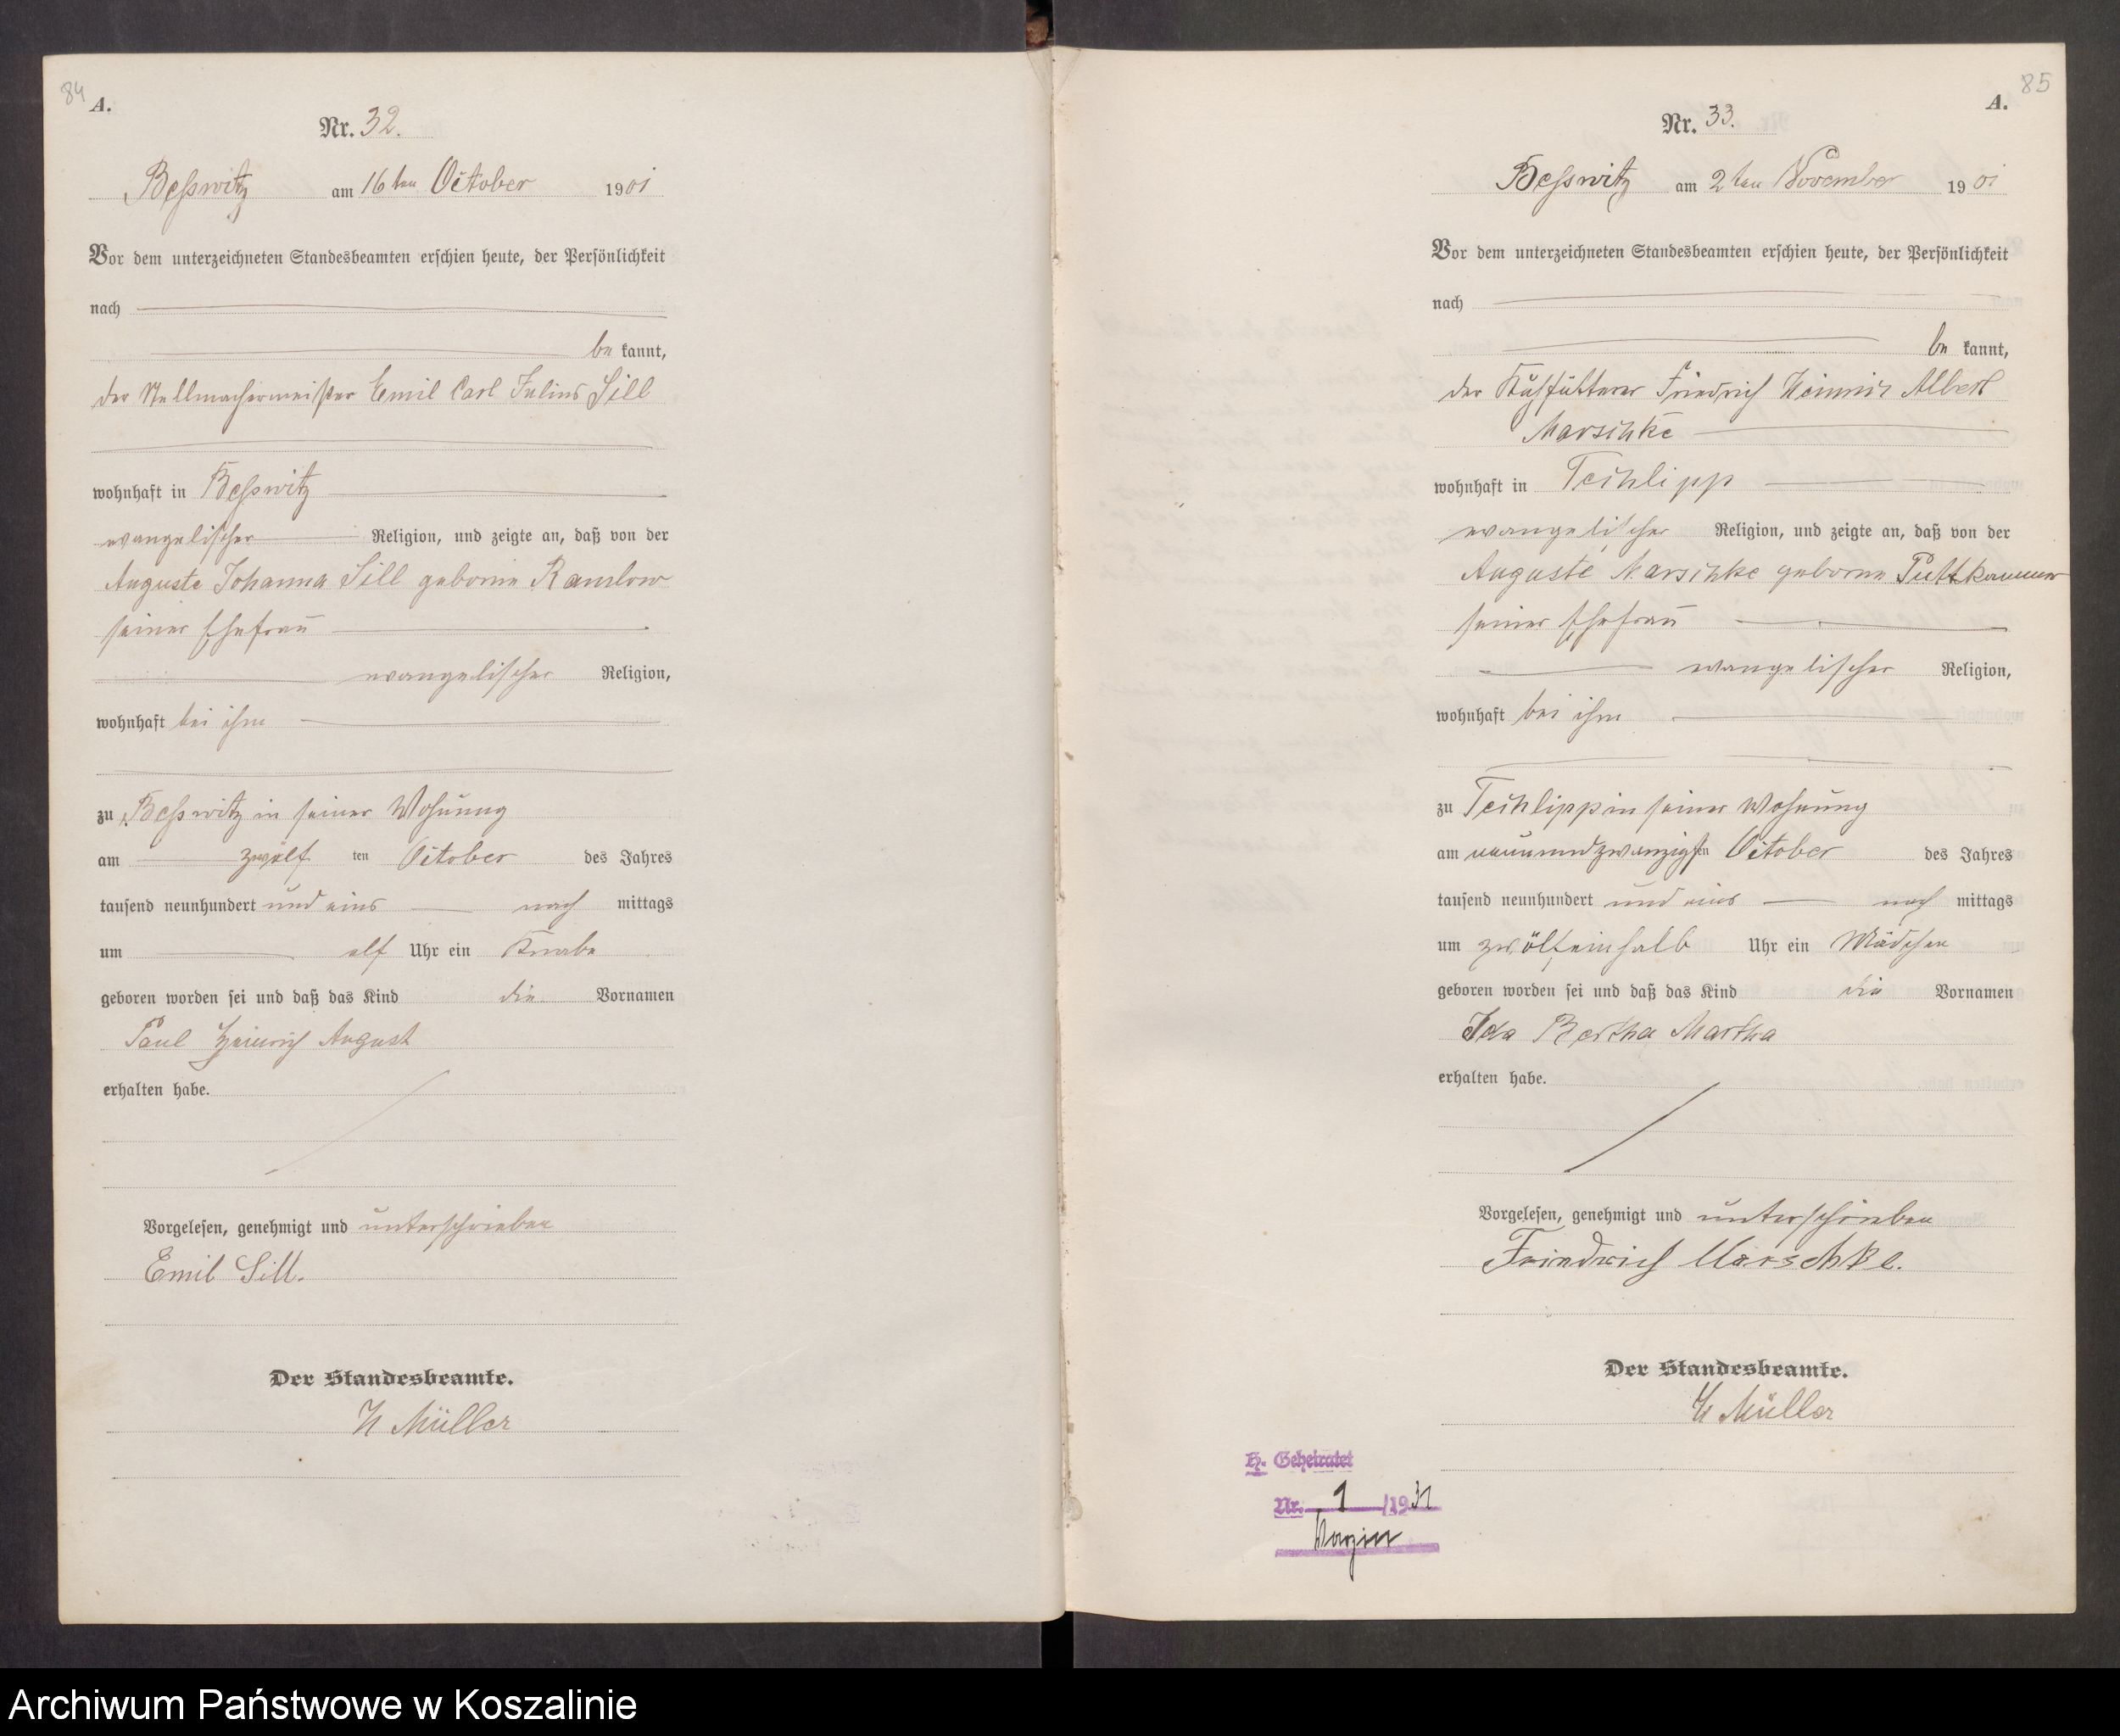 84
A.
Nr. 32.
Beßwitz am 16ten October 1901
Vor dem unterzeichneten Standesbeamten erschien heute, der Persönlichkeit
nach
be kannt,
der Stellmachermeister Emil Carl Julius Sill
wohnhaft in Beßwitz
evangelischer Religion, und zeigte an, daß von der
Auguste Johanna Sill geborene Ramlow
seiner Ehefrau
evangelischer Religion,
wohnhaft bei ihm
zu Beßwitz in seiner Wohnung
am zwölf ten October des Jahres
tausend neunhundert und eins nach mittags
um elf Uhr ein Knabe
geboren worden sei und daß das Kind die Vornamen
Paul Heinrich August
erhalten habe.
Vorgelesen, genehmigt und unterschrieben
Emil Sill.
Der Standesbeamte.
H Müller
85
A.
Nr. 33.
Beßwitz am 2ten November 1901
Vor dem unterzeichneten Standesbeamten erschien heute, der Persönlichkeit
nach
be kannt,
der Kuhfütterer Friedrich Heinrich Albert
Marschke
wohnhaft in Techlipp
evangelischer Religion, und zeigte an, daß von der
Auguste Marschke geborne Puttkammer
seiner Ehefrau
evangelischer Religion,
wohnhaft bei ihm
zu Techlipp in seiner Wohnung
am neunundzwanzigsten October des Jahres
tausend neunhundert und eins nach mittags
um zwölfeinhalb Uhr ein Mädchen
geboren worden sei und daß das Kind die Vornamen
Ida Bertha Martha
erhalten habe.
Vorgelesen, genehmigt und unterschrieben
Friedrich Marschke.
Der Standesbeamte.
H Müller
H. Geheiratet
Nr. 1 /1931
Varzin
Archiwum Państwowe w Koszalinie